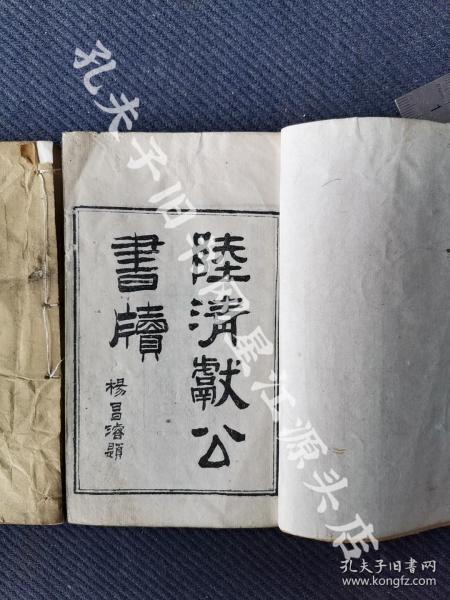 陸清獻公
書牘
楊昌濬題
孔夫子旧书网星汇源头店
孔夫子旧书网
www.kongfz.com
1